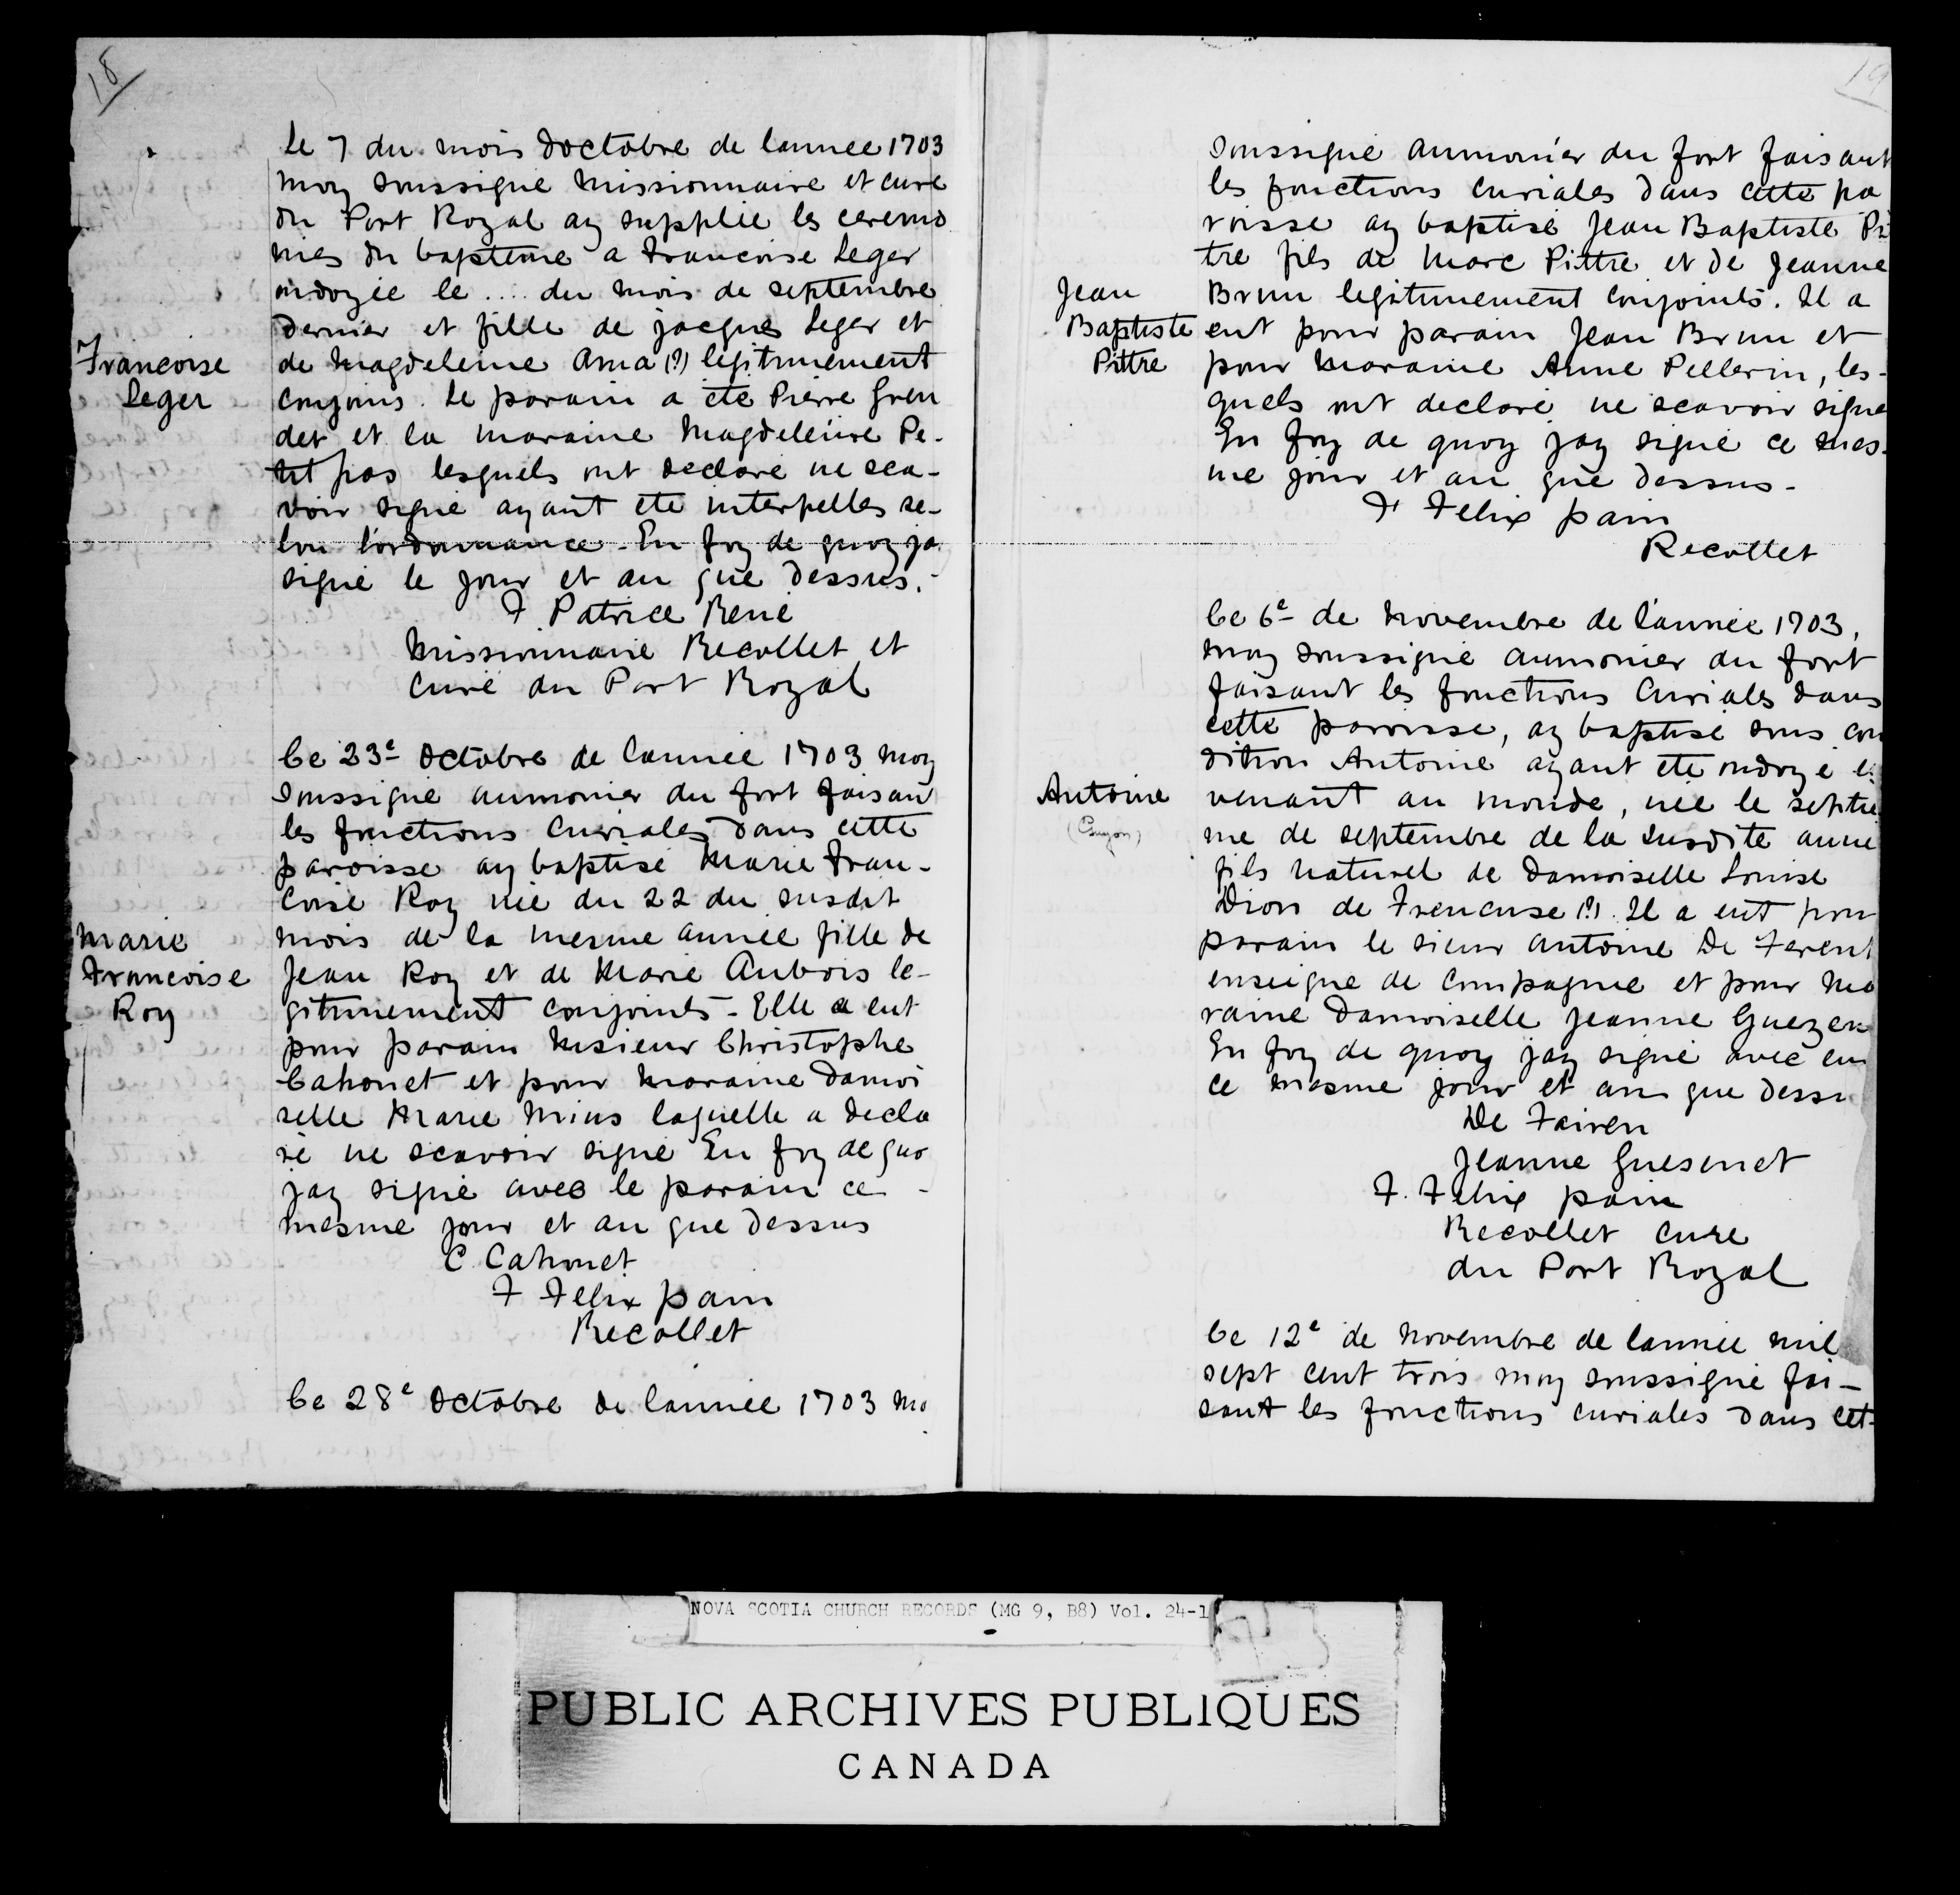 18
Le 7 du mois doctobre de lannee 1703
moy soussigné missionnaire et curé
du Port Royal ay supplié les ceremo
nies du baptême a Francoise Leger
ondoyée le .... du mois de septembre
dernier et fille de jacques Leger et
de Magdeleine Ama (?) legitimement
Francoise
Leger
conjoins. Le parain a été Pierre Gren
der et la maraine Magdeleine Pe-
tit pas lesquels ont declaré ne sca-
voir signé ayant eté interpellés se-
lon l'ordonnance. En foy de quoy ja
signé le jour et an que dessus.
F. Patrice René
Missionnaire Recollet et
curé du Port Royal
Ce 23e octobre de lannée 1703 moy
soussigné aumonier du fort faisan
les fonctions curiales dans cette
paroisse ay baptisé Marie Fran-
coise Roy née du 22 du susdit
mois de la mesme année fille de
Marie
Francoise
Roy
Jean Roy et de Marie Aubois le-
gitimement conjoints - Elle a eut
pour parain Misieur Christophe
Cahouet et pour maraine damoi
selle Marie Mius laquelle a decla
ré ne scavoir signé En foy de quo
jay signé avec le parain ce -
mesme jour et an que dessus
C. Cahouet
F Felix pain
Recollet
Ce 28e octobre de lannée 1703 mo
19
soussigné aumonier du fort faisant
les fonctions curiales dans cette pa
roisse ay baptisé Jean Baptiste Pi
tre fils de Marc Pittre et de Jeanne
Jean
Baptiste
Pittre
Brun legitimement conjoints. Il a
eut pour parain Jean Brun et
pour maraine Anne Pellerin, les-
quels ont declaré ne scavoir signe
En foy de quoy jay signé ce mes-
me jour et an que dessus -
F Felix pain
Recollet
Ce 6e de novembre de l'année 1703,
moy soussigné aumonier du fort
faisant les fonctions curiales dans
cette paroisse, ay baptisé sous con
dition Antoine ayant eté ondoyé e
Antoine
venant au monde, née le septie
me de septembre de la susdite anne
fils naturel de damoiselle Louise
Dion de Freneuse (?). Il a eut pour
parain le sieur antoine De Ferent
enseigne de compagnie et pour ma
raine damoiselle jeanne Guezen
En foy de quoy jay signé avec eu
ce mesme jour et an que dessu
De Fairen
Jeanne Guesenet
F. Felix pain
Recollet curé
du Port Royal
Ce 12e de novembre de lannée mil
sept cent trois moy soussigné fai-
sant les fonctions curiales dans cet-
NOVA SCOTIA CHURCH RECORDS (MG 9, B8) Vol. 24-1
PUBLIC ARCHIVES PUBLIQUES
CANADA